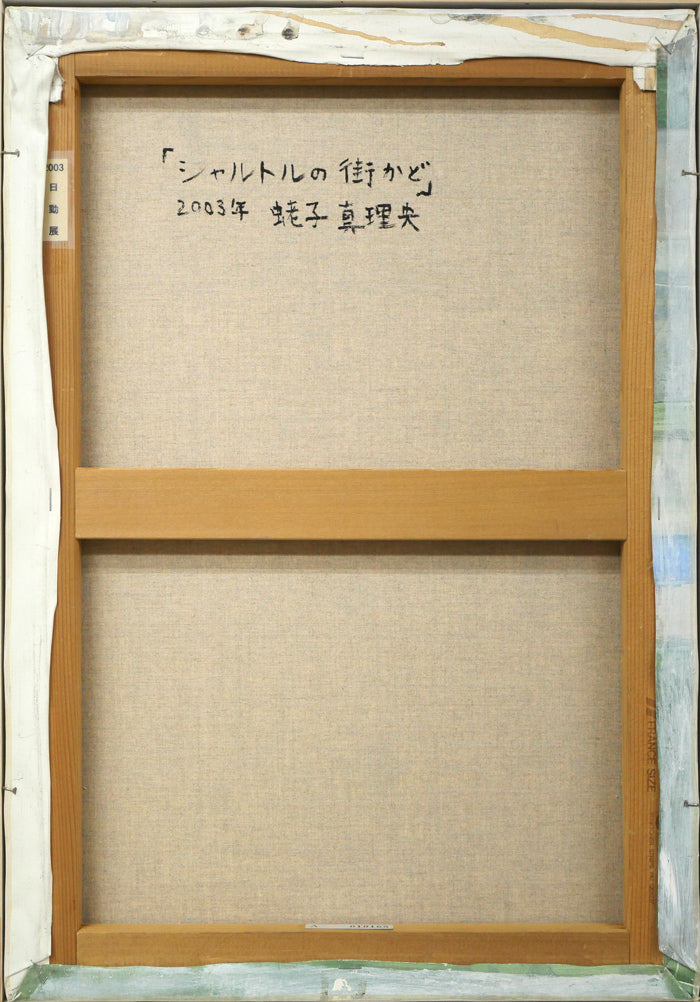 「シャルトルの街かど」
2003年 蛯子真理央
2003
日
動
展
FRANCE SIZE
A